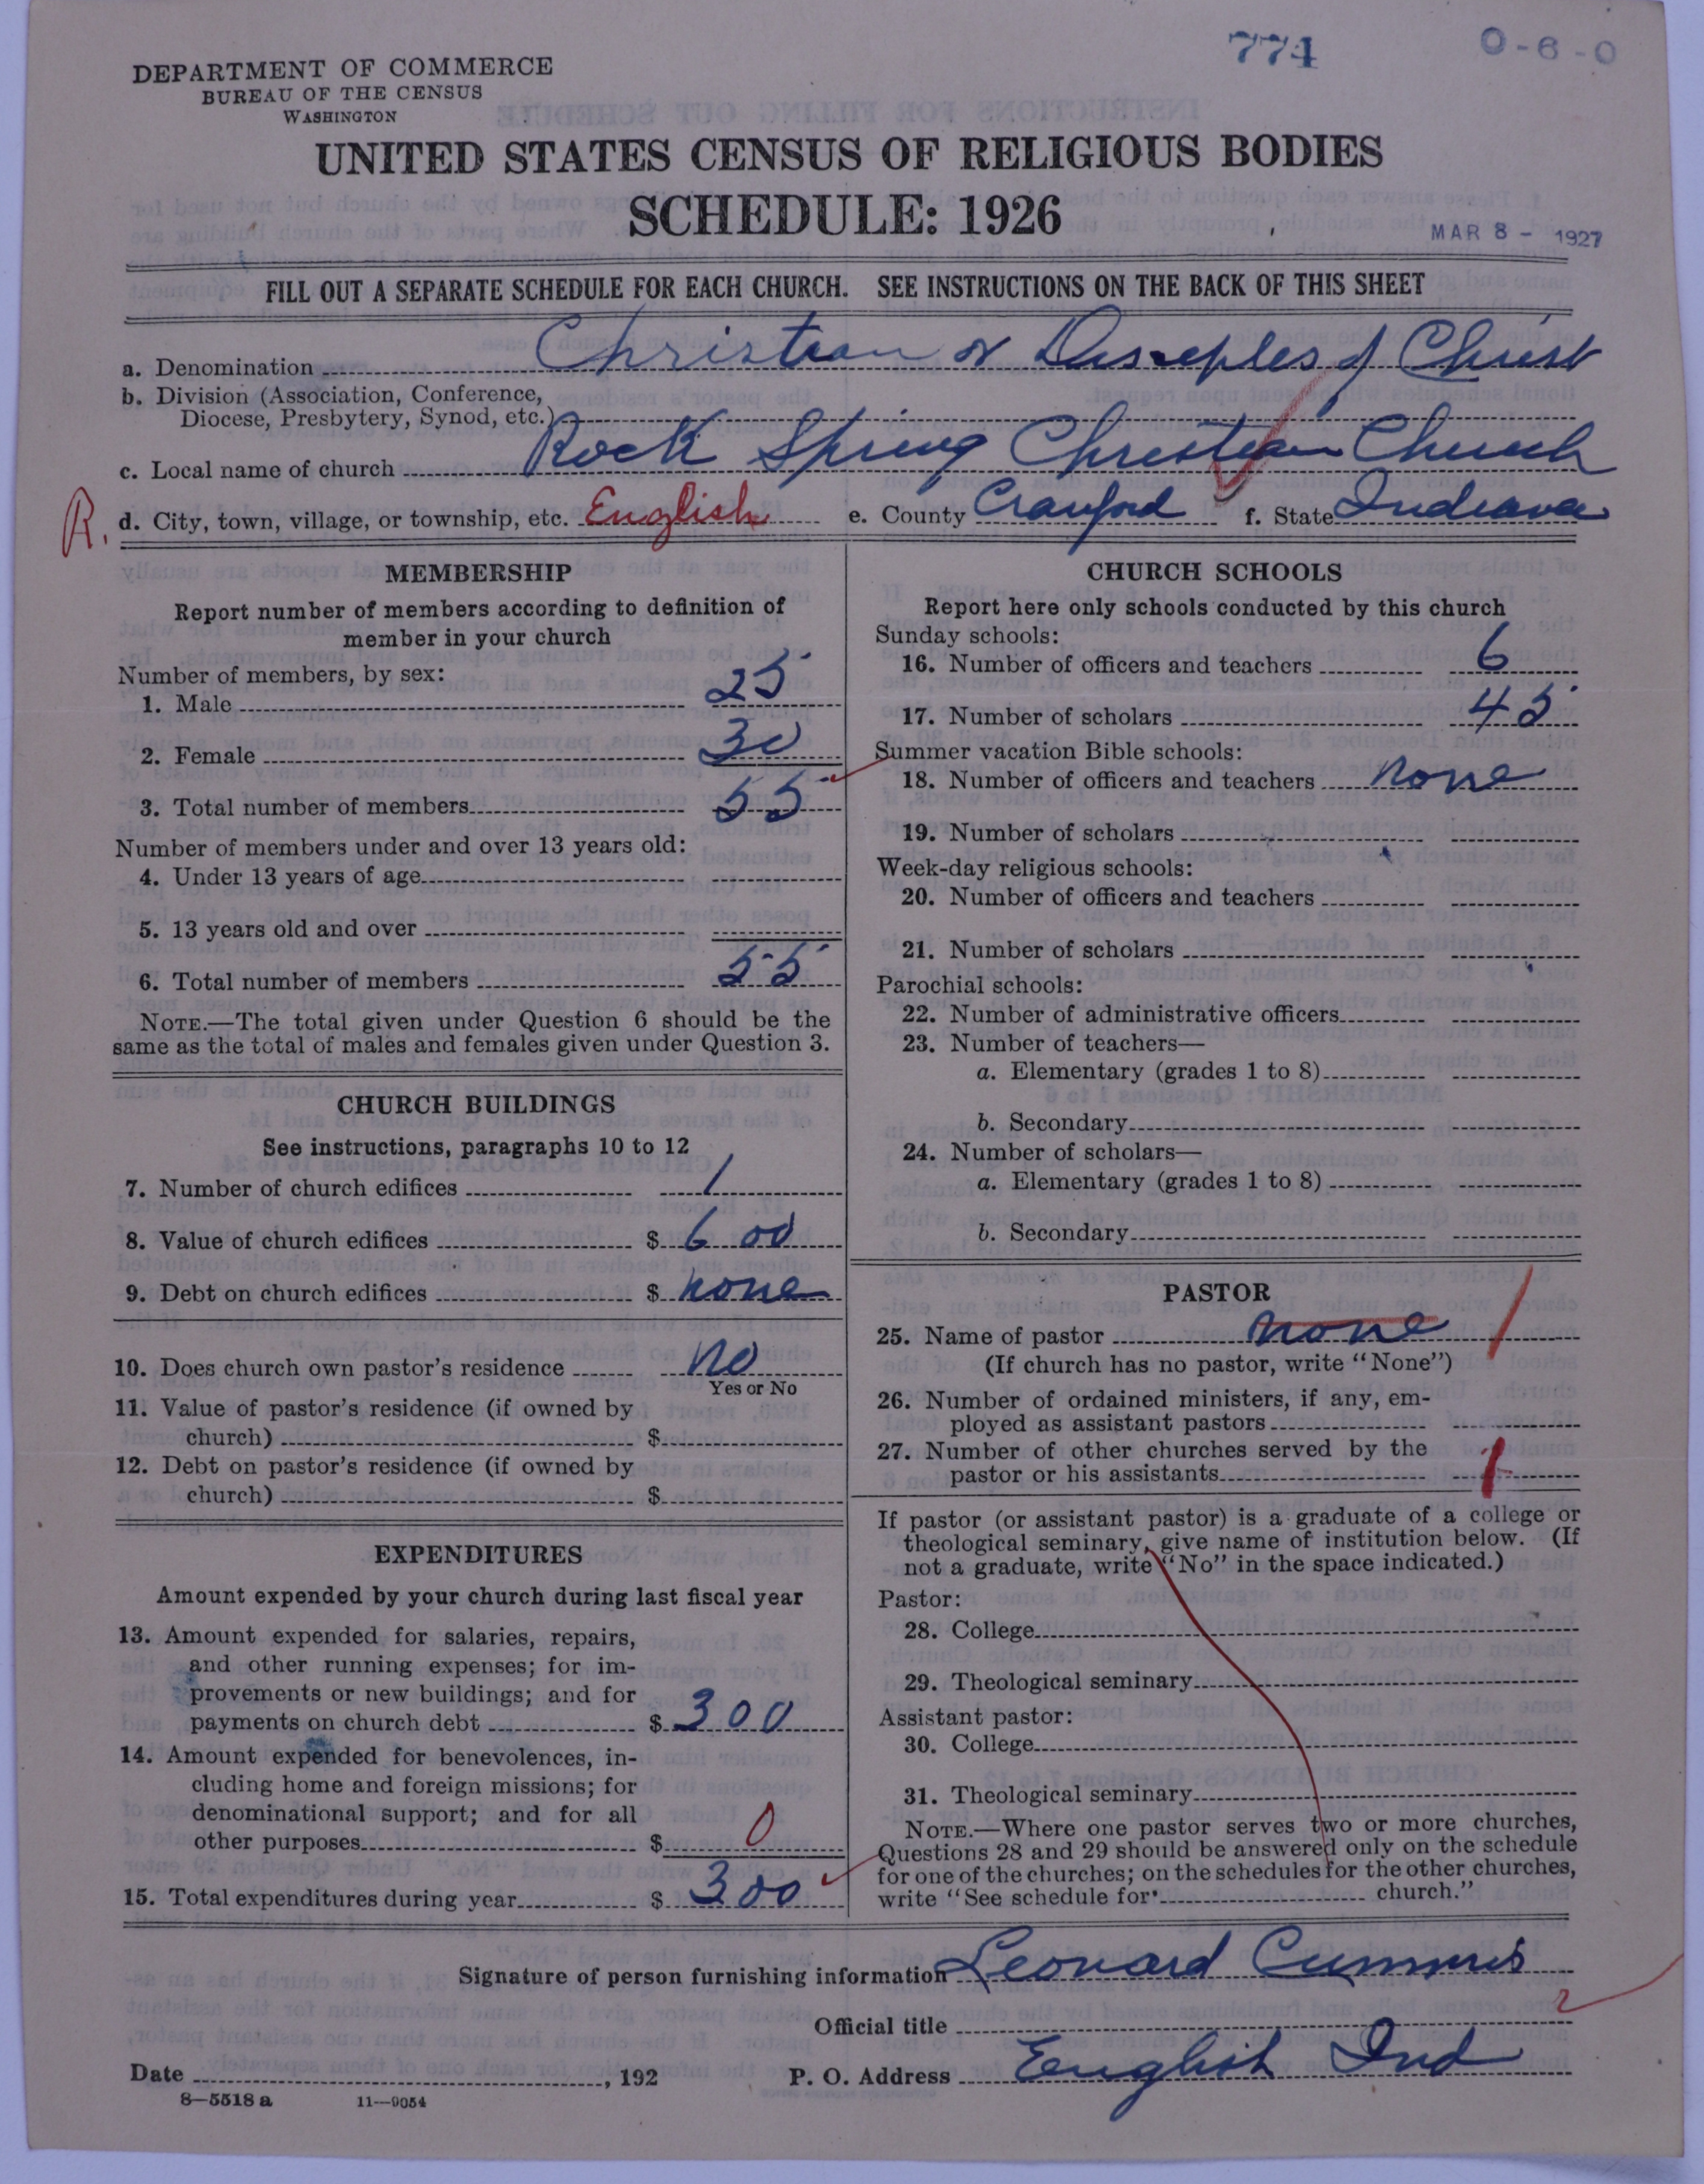 774
0-6-0
DEPARTMENT OF COMMERCE
BUREAU OF THE CENSUS
WASHINGTON
UNITED STATES CENSUS OF RELIGIOUS BODIES
SCHEDULE: 1926
MAR 8 - 1927
FILL OUT A SEPARATE SCHEDULE FOR EACH CHURCH. SEE INSTRUCTIONS ON THE BACK OF THIS SHEET
a. Denomination Christian or Disciples of Christ
b. Division (Association, Conference,
Diocese, Presbytery, Synod, etc.)
c. Local name of church Rock Spring Christian Church
R. d. City, town, village, or township, etc. English e. County Crawford f. State Indiana
MEMBERSHIP
Report number of members according to definition of
member in your church
Number of members, by sex:
1. Male 25
2. Female 30
3. Total number of members 55
Number of members under and over 13 years old:
4. Under 13 years of age
5. 13 years old and over
6. Total number of members 55
NOTE.—The total given under Question 6 should be the
same as the total of males and females given under Question 3.
CHURCH BUILDINGS
See instructions, paragraphs 10 to 12
7. Number of church edifices 1
8. Value of church edifices $ 600
9. Debt on church edifices $ none
10. Does church own pastor's residence No
Yes or No
11. Value of pastor's residence (if owned by
church) $
12. Debt on pastor's residence (if owned by
church) $
EXPENDITURES
Amount expended by your church during last fiscal year
13. Amount expended for salaries, repairs,
and other running expenses; for im-
provements or new buildings; and for
payments on church debt $ 300
14. Amount expended for benevolences, in-
cluding home and foreign missions; for
denominational support; and for all
other purposes $ 0
15. Total expenditures during year $ 300
CHURCH SCHOOLS
Report here only schools conducted by this church
Sunday schools:
16. Number of officers and teachers 6
17. Number of scholars 45
Summer vacation Bible schools:
18. Number of officers and teachers none
19. Number of scholars
Week-day religious schools:
20. Number of officers and teachers
21. Number of scholars
Parochial schools:
22. Number of administrative officers
23. Number of teachers—
a. Elementary (grades 1 to 8)
b. Secondary
24. Number of scholars—
a. Elementary (grades 1 to 8)
b. Secondary
PASTOR
25. Name of pastor none
(If church has no pastor, write "None")
26. Number of ordained ministers, if any, em-
ployed as assistant pastors
27. Number of other churches served by the
pastor or his assistants
If pastor (or assistant pastor) is a graduate of a college or
theological seminary, give name of institution below. (If
not a graduate, write "No" in the space indicated.)
Pastor:
28. College
29. Theological seminary
Assistant pastor:
30. College
31. Theological seminary
NOTE.—Where one pastor serves two or more churches,
Questions 28 and 29 should be answered only on the schedule
for one of the churches; on the schedules for the other churches,
write "See schedule for church."
Signature of person furnishing information Leonard Cummins
Official title
Date , 192 P. O. Address English Ind
8—5518 a 11—9054